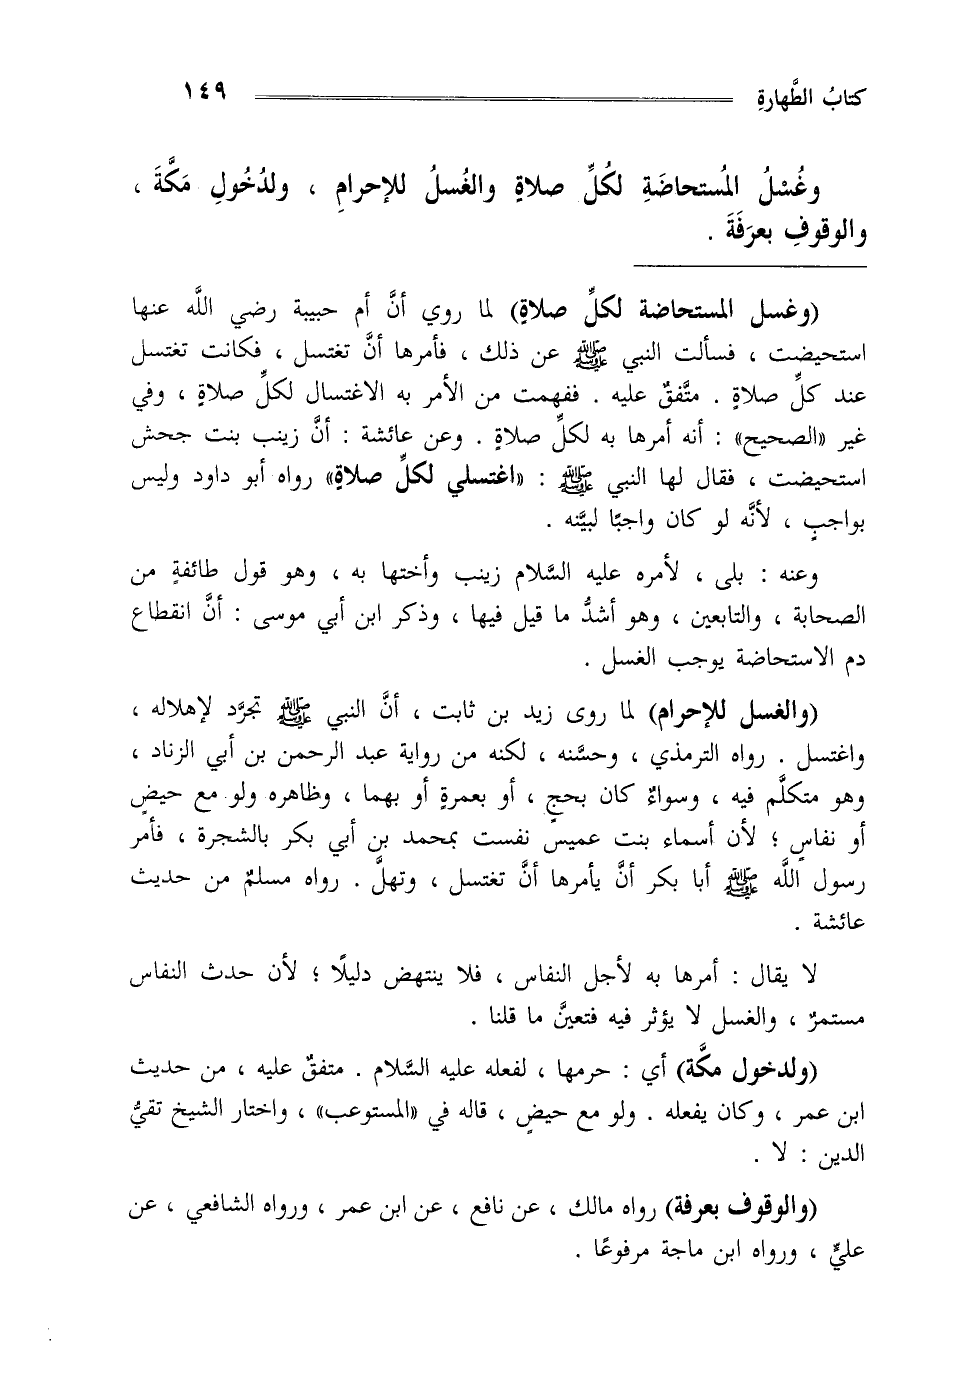 كتابُ الطَّهارةِ ١٤٩
وغُسْلُ المُستحاضَةِ لكُلِّ صلاةٍ والغُسلُ للإحرامِ ، ولدُخُولِ مَكَّةَ ،
والوقوفِ بعرَفَةَ .
(وغسل المستحاضة لكلِّ صلاةٍ) لما روي أنَّ أم حبيبة رضي اللَّه عنها
استحيضت ، فسألت النبي ﷺ عن ذلك ، فأمرها أنَّ تغتسل ، فكانت تغتسل
عند كلِّ صلاةٍ . متَّفقٌ عليه . ففهمت من الأمر به الاغتسال لكلِّ صلاةٍ ، وفي
غير «الصحيح» : أنه أمرها به لكلِّ صلاةٍ . وعن عائشة : أنَّ زينب بنت جحش
استحيضت ، فقال لها النبي ﷺ : «اغتسلي لكلِّ صلاةٍ» رواه أبو داود وليس
بواجبٍ ، لأنَّه لو كان واجبًا لبيَّنه .
وعنه : بلى ، لأمره عليه السَّلام زينب وأختها به ، وهو قول طائفةٍ من
الصحابة ، والتابعين ، وهو أشدُّ ما قيل فيها ، وذكر ابن أبي موسى : أنَّ انقطاع
دم الاستحاضة يوجب الغسل .
(والغسل للإحرام) لما روى زيد بن ثابت ، أنَّ النبي ﷺ تجرَّد لإهلاله ،
واغتسل . رواه الترمذي ، وحسَّنه ، لكنه من رواية عبد الرحمن بن أبي الزناد ،
وهو متكلَّم فيه ، وسواءٌ كان بحجٍ ، أو بعمرةٍ أو بهما ، وظاهره ولو مع حيضٍ
أو نفاسٍ ؛ لأن أسماء بنت عميس نفست بمحمد بن أبي بكر بالشجرة ، فأمر
رسول اللَّه ﷺ أبا بكر أنَّ يأمرها أنَّ تغتسل ، وتهلَّ . رواه مسلمٌ من حديث
عائشة .
لا يقال : أمرها به لأجل النفاس ، فلا ينتهض دليلًا ؛ لأن حدث النفاس
مستمرٌ ، والغسل لا يؤثر فيه فتعينَّ ما قلنا .
(ولدخول مكَّة) أي : حرمها ، لفعله عليه السَّلام . متفقٌ عليه ، من حديث
ابن عمر ، وكان يفعله . ولو مع حيضٍ ، قاله في «المستوعب» ، واختار الشيخ تقيُّ
الدين : لا .
(والوقوف بعرفة) رواه مالك ، عن نافع ، عن ابن عمر ، ورواه الشافعي ، عن
عليٍّ ، ورواه ابن ماجة مرفوعًا .